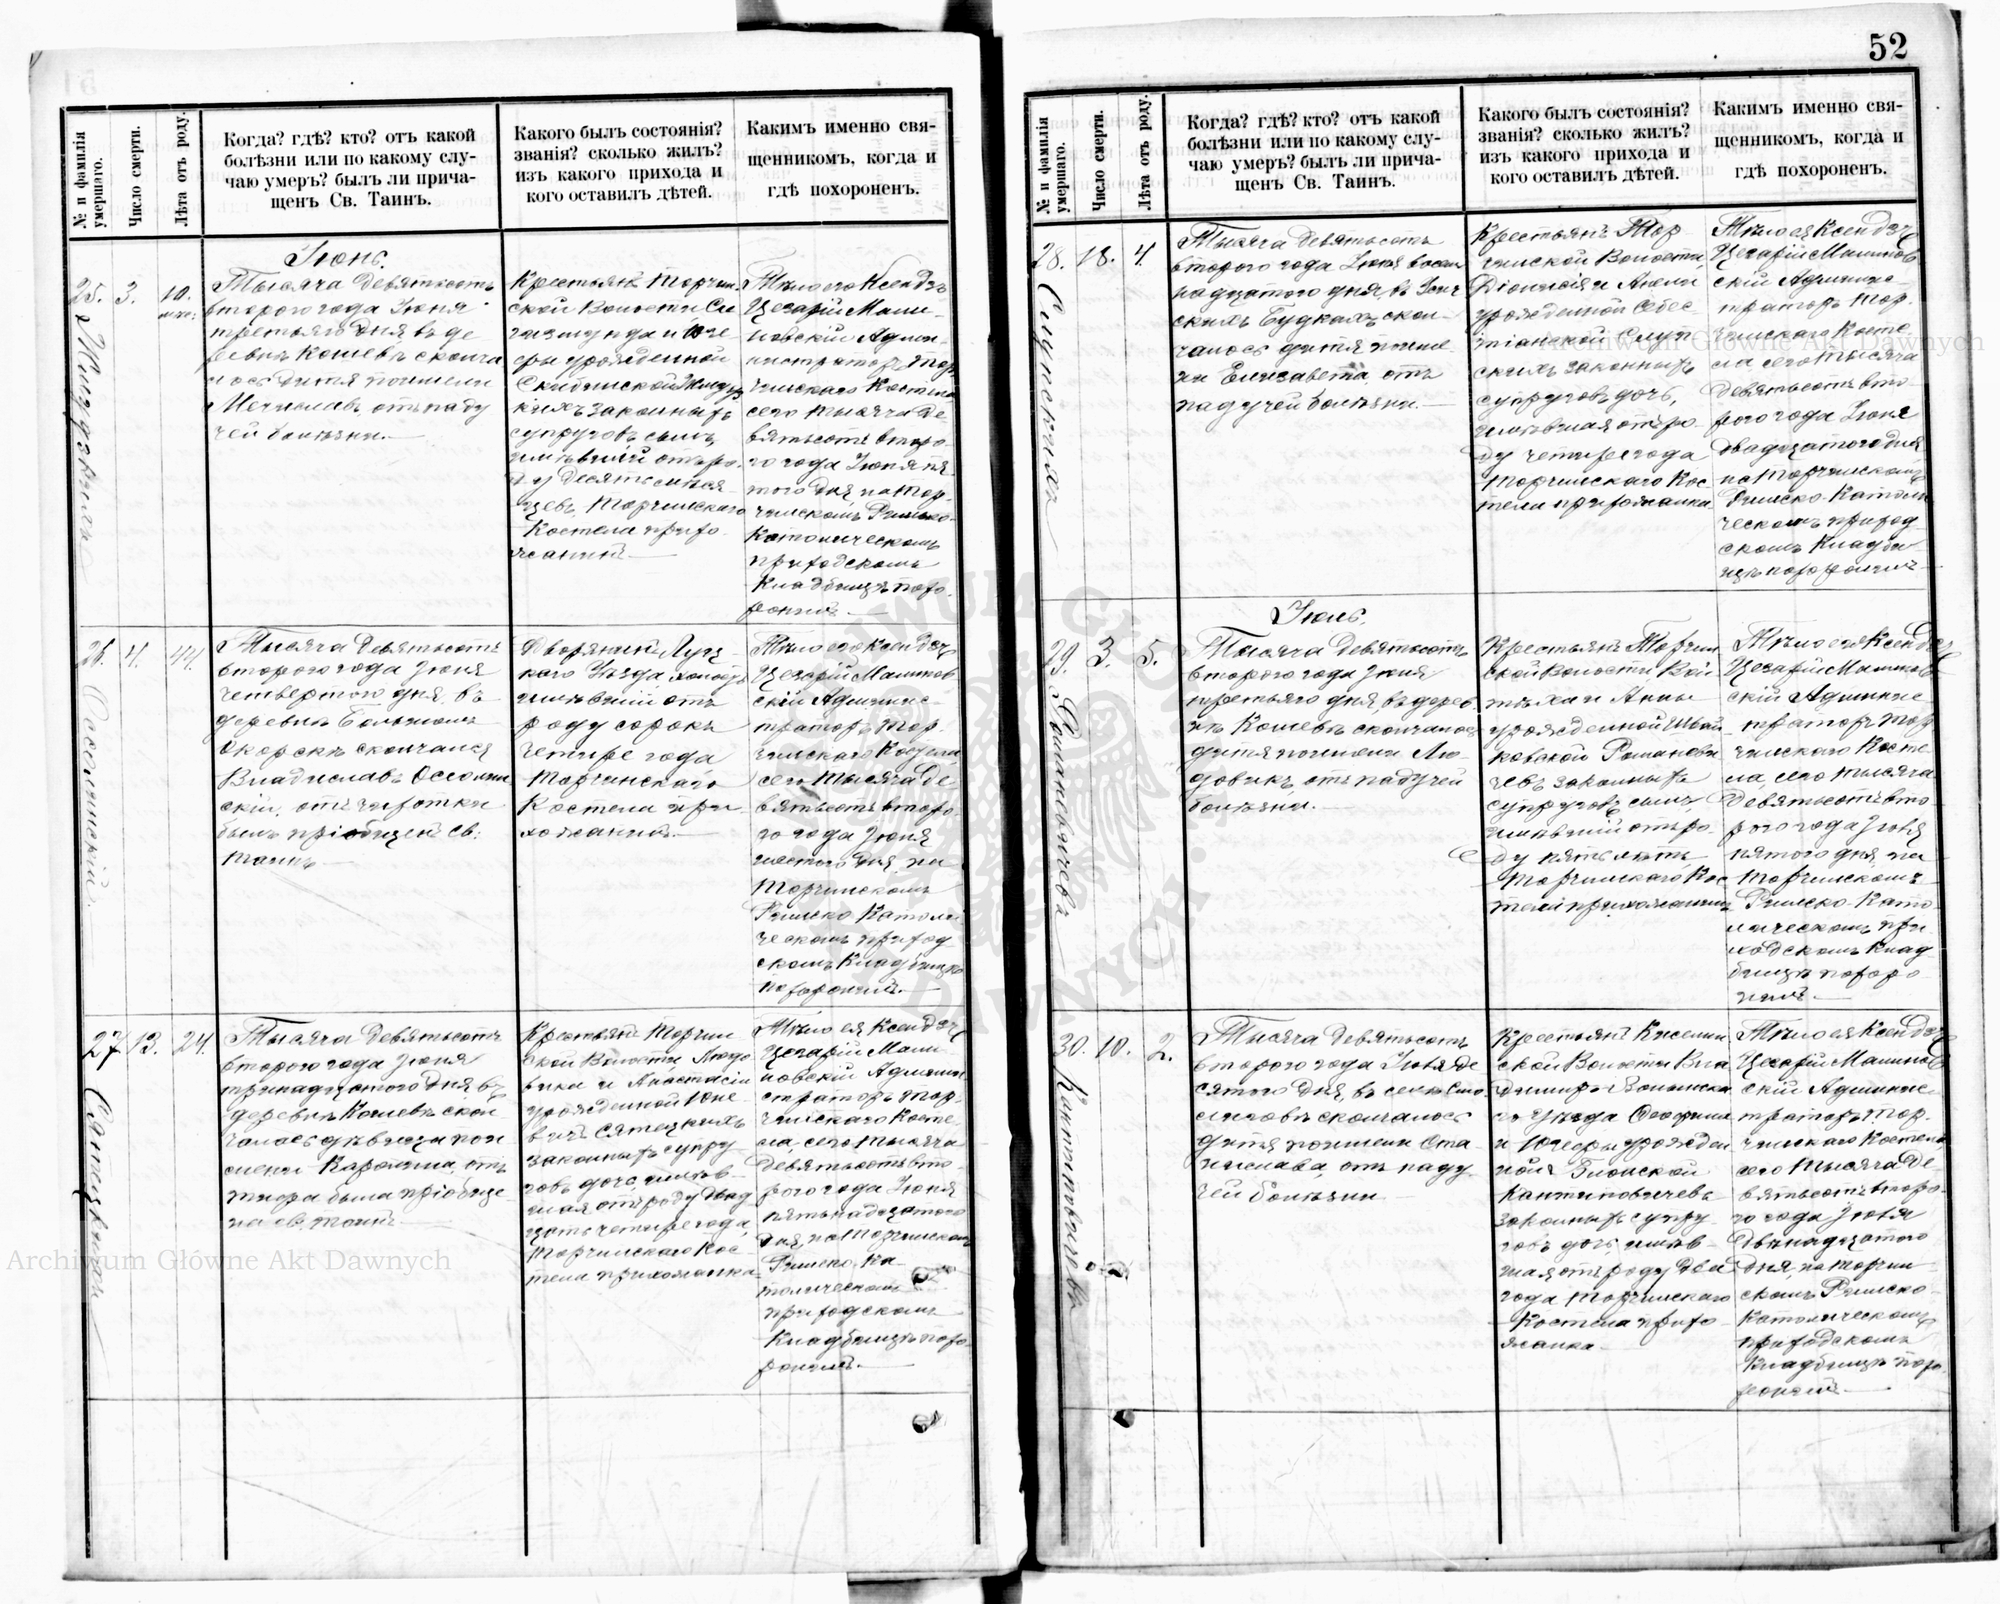 52
№ и фамилія умершаго.
Число смерти.
Лѣта отъ роду.
Когда? гдѣ? кто? отъ какой
болѣзни или по какому слу-
чаю умеръ? былъ ли прича-
щенъ Св. Таинъ.
Какого былъ состоянія?
званія? сколько жилъ?
изъ какого прихода и
кого оставилъ дѣтей.
Какимъ именно свя-
щенникомъ, когда и
гдѣ похороненъ.
Іюнь.
25. 3. 10.
Тысяча девятьсотъ
второго года Іюня
третьяго дня въ де
ревнѣ Кошевѣ сконча
лось дитя по имени
Мечиславъ отъ паду
чей болѣзни.
Крестьянъ Торчин
ской Волости, Си
гизмунда и Юзе
фы урожденной
законныхъ
супруговъ сынъ,
имѣвшій отъ ро
ду десять мѣся
цевъ Торчинскаго
Костела прихо
жанинъ.
Тѣло его Ксендзъ
Цезарій Мали
новскій Админи
страторъ Тор
чинскаго Костела
сего тысяча де
вятьсотъ второ
го года Іюня пя
того дня, на Тор
чинскомъ Римско-
Католическомъ
приходскомъ
Кладбищѣ похо
ронилъ.
26. 4. 44.
Тысяча девятьсотъ
второго года Іюня
четвертого дня въ
деревнѣ Большомъ
Окорскѣ скончался
Владиславъ Осолин
скій, отъ чахотки
былъ пріобщенъ Св.
Таинъ
Осолинскій
Дворянинъ Луц
каго Уѣзда
имѣвшій отъ
роду сорокъ
четыре года
Торчинскаго
Костела при
хожанинъ.
Тѣло его Ксендзъ
Цезарій Малинов
скій Админис
траторъ Тор
чинскаго Костела,
сего тысяча де
вятьсотъ второ
го года Іюня
шестого дня, на
Торчинскомъ
Римско Католи
ческомъ приход
скомъ Кладбищѣ
похоронилъ.
27. 13. 24.
Тысяча девятьсотъ
второго года Іюня
тринадцатого дня въ
деревнѣ Кошевѣ скон
чалась дѣвица по и
мени Каролина, отъ
тифа была пріобще
на св. таинъ
Крестьянъ Торчин
ской Волости, Людо
вика и Анастасіи
урожденной Юне
вичъ Сятецкихъ
законныхъ супру
говъ дочь, имѣв
шая отъ роду двад
цать четыре года,
Торчинскаго Кос
тела прихожанка
Тѣло ея Ксендзъ
Цезарій Мали
новскій Админи
страторъ Тор
чинскаго Косте
ла, сего тысяча
девятьсотъ вто
рого года Іюня
пятнадцатого
дня, на Торчинском
Римско Ка
толическомъ
приходскомъ
Кладбищѣ похо
ронилъ.
№ и фамилія умершаго.
Число смерти.
Лѣта отъ роду.
Когда? гдѣ? кто? отъ какой
болѣзни или по какому слу-
чаю умеръ? былъ ли прича-
щенъ Св. Таинъ.
Какого былъ состоянія?
званія? сколько жилъ?
изъ какого прихода и
кого оставилъ дѣтей.
Какимъ именно свя-
щенникомъ, когда и
гдѣ похороненъ.
28. 18. 4.
Тысяча девятьсотъ
второго года Іюня восем
надцатого дня, въ
Будкахъ скон
чалось дитя по име
ни Елизавета, отъ
падучей болѣзни.
Крестьянъ Тор
чинской Волости,
Діонисія и
урожденной
законныхъ
супруговъ дочь,
имѣвшая отъ ро
ду четыре года
Торчинскаго Кос
тела прихожанка
Тѣло ея Ксендзъ
Цезарій Малинов
скій Админис
траторъ Тор
чинскаго Косте
ла сего тысяча
девятьсотъ вто
рого года Іюня
двадцатого дня
на Торчинскомъ
Римско-Католи
ческомъ приход
скомъ Кладби
щѣ похоронилъ
Іюль.
29. 3. 5.
Тысяча девятьсотъ
второго года Іюля
третьяго дня въ дерев
нѣ Кошевѣ скончалось
дитя по имени Лю
довикъ, отъ падучей
болѣзни.
Романовичевъ
Крестьянъ Торчин
ской Волости Вой
тѣха и Анны
урожденной
Романови
чевъ законныхъ
супруговъ сынъ,
имѣвшій отъ ро
ду пять лѣтъ
Торчинскаго Кос
тела прихожанинъ
Тѣло его Ксендзъ
Цезарій Малинов
скій Админис
траторъ Тор
чинскаго Косте
ла, сего тысяча
девятьсотъ вто
рого года Іюля
пятого дня, на
Торчинскомъ
Римско-Като
лическомъ при
ходскомъ Клад
бищѣ похоро
нилъ.
30. 10. 2.
Тысяча девятьсотъ
второго года Іюля де
сятого дня, въ селѣ
скончалось
дитя по имени Ста
нислава, отъ паду
чей болѣзни
Кантиповичевъ
Крестьянъ Киселин
ской Волости Вла
димиръ Волынска
го Уѣзда
и Юзефы урожден
ной
Кантиповичевъ
законныхъ супру
говъ дочь имѣв
шая отъ роду два
года Торчинскаго
Костела прихо
жанка.
Тѣло ея Ксендзъ
Цезарій Малинов
скій Админис
траторъ Тор
чинскаго Костела
сего тысяча де
вятьсотъ второ
го года Іюля
двѣнадцатого
дня, на Торчин
скомъ Римско
Католическомъ
приходскомъ
Кладбищѣ похо
ронилъ
Archiwum Główne Akt Dawnych
Archiwum Główne Akt Dawnych